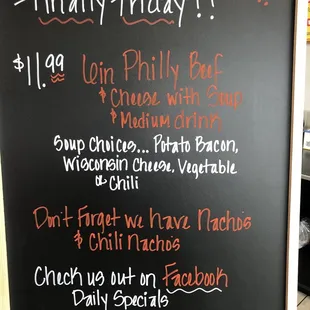 Finally Friday!!
$11.99 6in Philly Beef
& Cheese with Soup
& Medium drink
Soup Choices... Potato Bacon,
Wisconsin Cheese, Vegetable
or Chili
Don't Forget we have Nachos
& Chili Nachos
Check us out on Facebook
Daily Specials